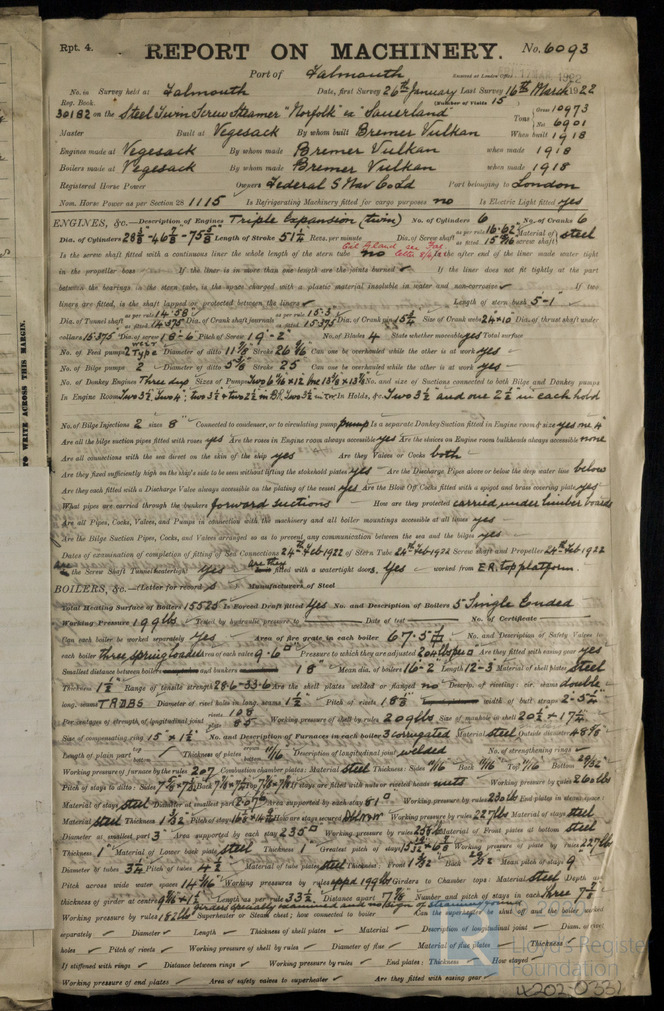 Rpt. 4.
REPORT ON MACHINERY.
No. 6093
Port of Falmouth
Received at London Office 1922
No. in Survey held at Falmouth Date, first Survey 26th January Last Survey 16th March 1922
Reg. Book. (Number of Visits 15)
30182 on the Steel Twin Screw Steamer "Norfolk" ex "Sauerland" Tons Gross 10973 Net 6901
Master Built at Vegesack By whom built Bremer Vulkan When built 1918
Engines made at Vegesack By whom made Bremer Vulkan when made 1918
Boilers made at Vegesack By whom made Bremer Vulkan when made 1918
Registered Horse Power Owners Federal S Nav Co Ld Port belonging to London
Nom. Horse Power as per Section 28 1115 Is Refrigerating Machinery fitted for cargo purposes no Is Electric Light fitted yes
ENGINES, &c.—Description of Engines Triple Expansion (twin) No. of Cylinders 6 No. of Cranks 6
Dia. of Cylinders Length of Stroke 51 1/4" Revs. per minute Dia. of Screw shaft as per rule 16.62" as fitted Material of screw shaft steel
Is the screw shaft fitted with a continuous liner the whole length of the stern tube no Is the after end of the liner made water tight
in the propeller boss If the liner is in more than one length are the joints burned ✓ If the liner does not fit tightly at the part
between the bearings in the stern tube, is the space charged with a plastic material insoluble in water and non-corrosive ✓ If two
liners are fitted, is the shaft lapped or protected between the liners ✓ Length of stern bush 5'-1"
Dia. of Tunnel shaft as per rule 14.58" as fitted 14.375 Dia. of Crank shaft journals as per rule 15.3" as fitted 15.375 Dia. of Crank pin 15 3/4 Size of Crank webs 24×10 Dia. of thrust shaft under
collars 15.375" Dia. of screw 18-6 Pitch of Screw 19'-2" No. of Blades 4 State whether moveable yes Total surface
No. of Feed pumps 2 Weir Type Diameter of ditto Stroke Can one be overhauled while the other is at work yes
No. of Bilge pumps 2 Diameter of ditto Stroke 25 Can one be overhauled while the other is at work yes
No. of Donkey Engines Three dup Sizes of Pumps No. and size of Suctions connected to both Bilge and Donkey pumps
In Engine Room In Holds, &c. Two 3 1/2" and one 2 1/2" in each hold
No. of Bilge Injections 2 sizes 8" Connected to condenser, or to circulating pump pump Is a separate Donkey Suction fitted in Engine room & size yes one 4"
Are all the bilge suction pipes fitted with roses yes Are the roses in Engine room always accessible yes Are the sluices on Engine room bulkheads always accessible none
Are all connections with the sea direct on the skin of the ship yes Are they Valves or Cocks both
Are they fixed sufficiently high on the ship's side to be seen without lifting the stokehold plates yes Are the Discharge Pipes above or below the deep water line below
Are they each fitted with a Discharge Valve always accessible on the plating of the vessel yes Are the Blow Off Cocks fitted with a spigot and brass covering plate yes
What pipes are carried through the bunkers forward suctions How are they protected carried under limber boards
Are all Pipes, Cocks, Valves, and Pumps in connection with the machinery and all boiler mountings accessible at all times yes
Are the Bilge Suction Pipes, Cocks, and Valves arranged so as to prevent any communication between the sea and the bilges yes
Dates of examination of completion of fitting of Sea Connections 24th Feb 1922 of Stern Tube 24th Feb 1922 Screw shaft and Propeller 24th Feb 1922
Are the Screw Shaft Tunnels watertight Yes are they fitted with a watertight doors, Yes worked from E.R. top platform.
BOILERS, &c.—(Letter for record S) Manufacturers of Steel
Total Heating Surface of Boilers 15525 Is Forced Draft fitted Yes No. and Description of Boilers 5 Single Ended
Working Pressure 199 lbs Tested by hydraulic pressure to Date of test No. of Certificate
Can each boiler be worked separately yes Area of fire grate in each boiler 67.5 No. and Description of Safety Valves to
each boiler Three spring loaded Area of each valve 9.6 Pressure to which they are adjusted 204 lbs Are they fitted with easing gear yes
Smallest distance between boilers and bunkers 18" Mean dia. of boilers 16-2 Length 12-3 Material of shell plates steel
Thickness 1 1/2" Range of tensile strength 28.6-33.6 Are the shell plates welded or flanged no Descrip. of riveting: cir. seams double
long. seams TRDBS Diameter of rivet holes in long. seams 1 1/2" Pitch of rivets width of butt straps
Per centages of strength of longitudinal joint rivets 108 plate 85 Working pressure of shell by rules 209 lbs Size of manhole in shell 20 1/2 × 17 1/4
Size of compensating ring 15 × 1 1/2" No. and Description of Furnaces in each boiler 3 corrugated Material steel Outside diameter 48 5/8"
Length of plain part top bottom Thickness of plates 11/16 Description of longitudinal joint welded No. of strengthening rings
Working pressure of furnace by the rules 207 Combustion chamber plates: Material steel Thickness: Sides 11/16 Back 11/16 Top 11/16 Bottom 29/32"
Pitch of stays to ditto: Sides Back Top If stays are fitted with nuts or riveted heads nuts Working pressure by rules 260 lbs
Material of stays steel Diameter at smallest part 2.07 Area supported by each stay 81 Working pressure by rules 230 lb End plates in steam space
Material steel Thickness 1 3/32 Pitch of stays How are stays secured Working pressure by rules 227 lbs Material of stays steel
Diameter at smallest part 3" Area supported by each stay 235 Working pressure by rules Material of Front plates at bottom steel
Thickness 1" Material of Lower back plate steel Thickness 1" Greatest pitch of stays Working pressure of plate by rules 227 lbs
Diameter of tubes 3 1/4 Pitch of tubes 4 1/2 Material of tube plates steel Thickness: Front 1 1/32 Back 29/32 Mean pitch of stays 9
Pitch across wide water spaces 14 7/16 Working pressures by rules Girders to Chamber tops: Material steel Depth and
thickness of girder at centre Length as per rule 33 1/2 Distance apart 7 7/8 Number and pitch of stays in each Three 7 7/8
Working pressure by rules 182 lbs Superheater or Steam chest; how connected to boiler Can the superheater be shut off and the boiler worked
separately Diameter Length Thickness of shell plates Material Description of longitudinal joint Diam. of rivet
holes Pitch of rivets Working pressure of shell by rules Diameter of flue Material of flue plates Thickness
If stiffened with rings Distance between rings Working pressure by rules End plates: Thickness How stayed
Working pressure of end plates Area of safety valves to superheater Are they fitted with easing gear
TO WRITE ACROSS THIS MARGIN.
© 2021
Lloyd's Register
Foundation
W202-0332